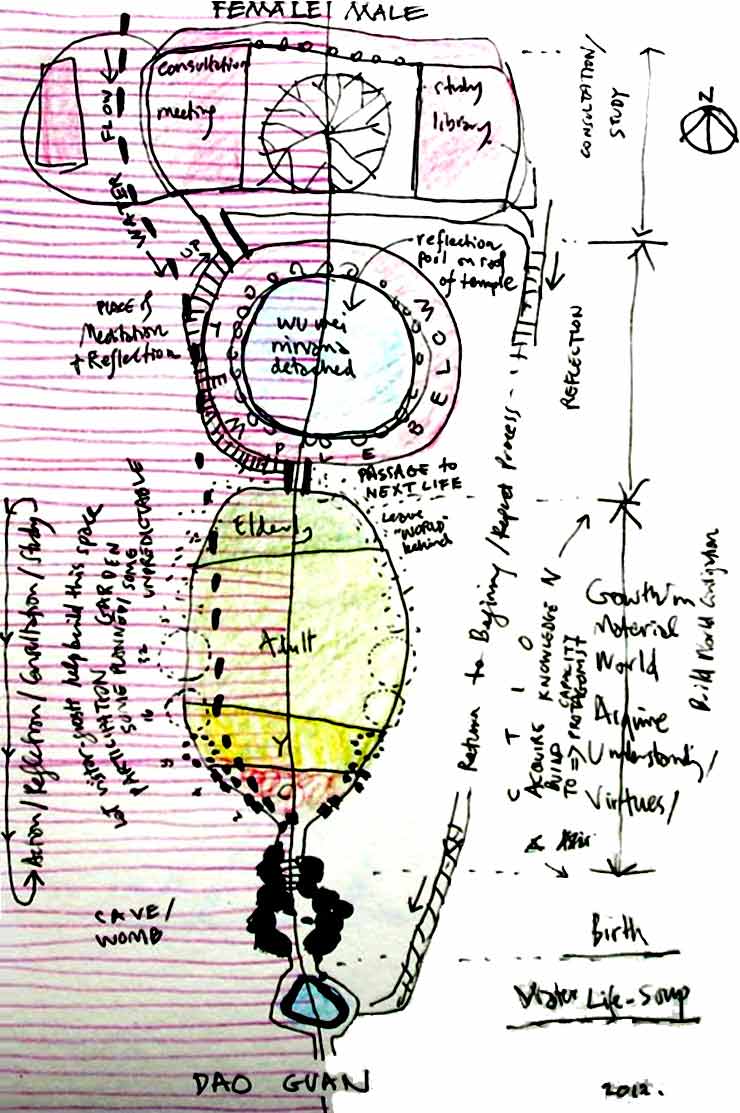 FEMALE | MALE
consultation
meeting
study
library
WATER FLOW
UP
CONSULTATION/
STUDY
N
reflection
pool on roof
of temple
PLACE of
Meditation
+ Reflection
wu wei
nirvana
detached
TEMPLE BELOW
REFLECTION
PASSAGE to
NEXT LIFE
Leave
"WORLD"
behind
Elderly
Adult
Y
C
32
16
Action/Reflection/Consultation/Study
LET visitor-guests help build this space
PARTICIPATION GARDEN
SOME PLANNED/SOME
UNPREDICTABLE
Return to Beginning/Repeat Process
ACTION
ACQUIRE KNOWLEDGE
BUILD CAPACITY
TO => PROTAGONIST
Growth in
Material
World
Acquire
Understanding/
Virtues/
Build World Civilization
CAVE/
WOMB
Birth
Water Life-Soup
DAO GUAN
2012.